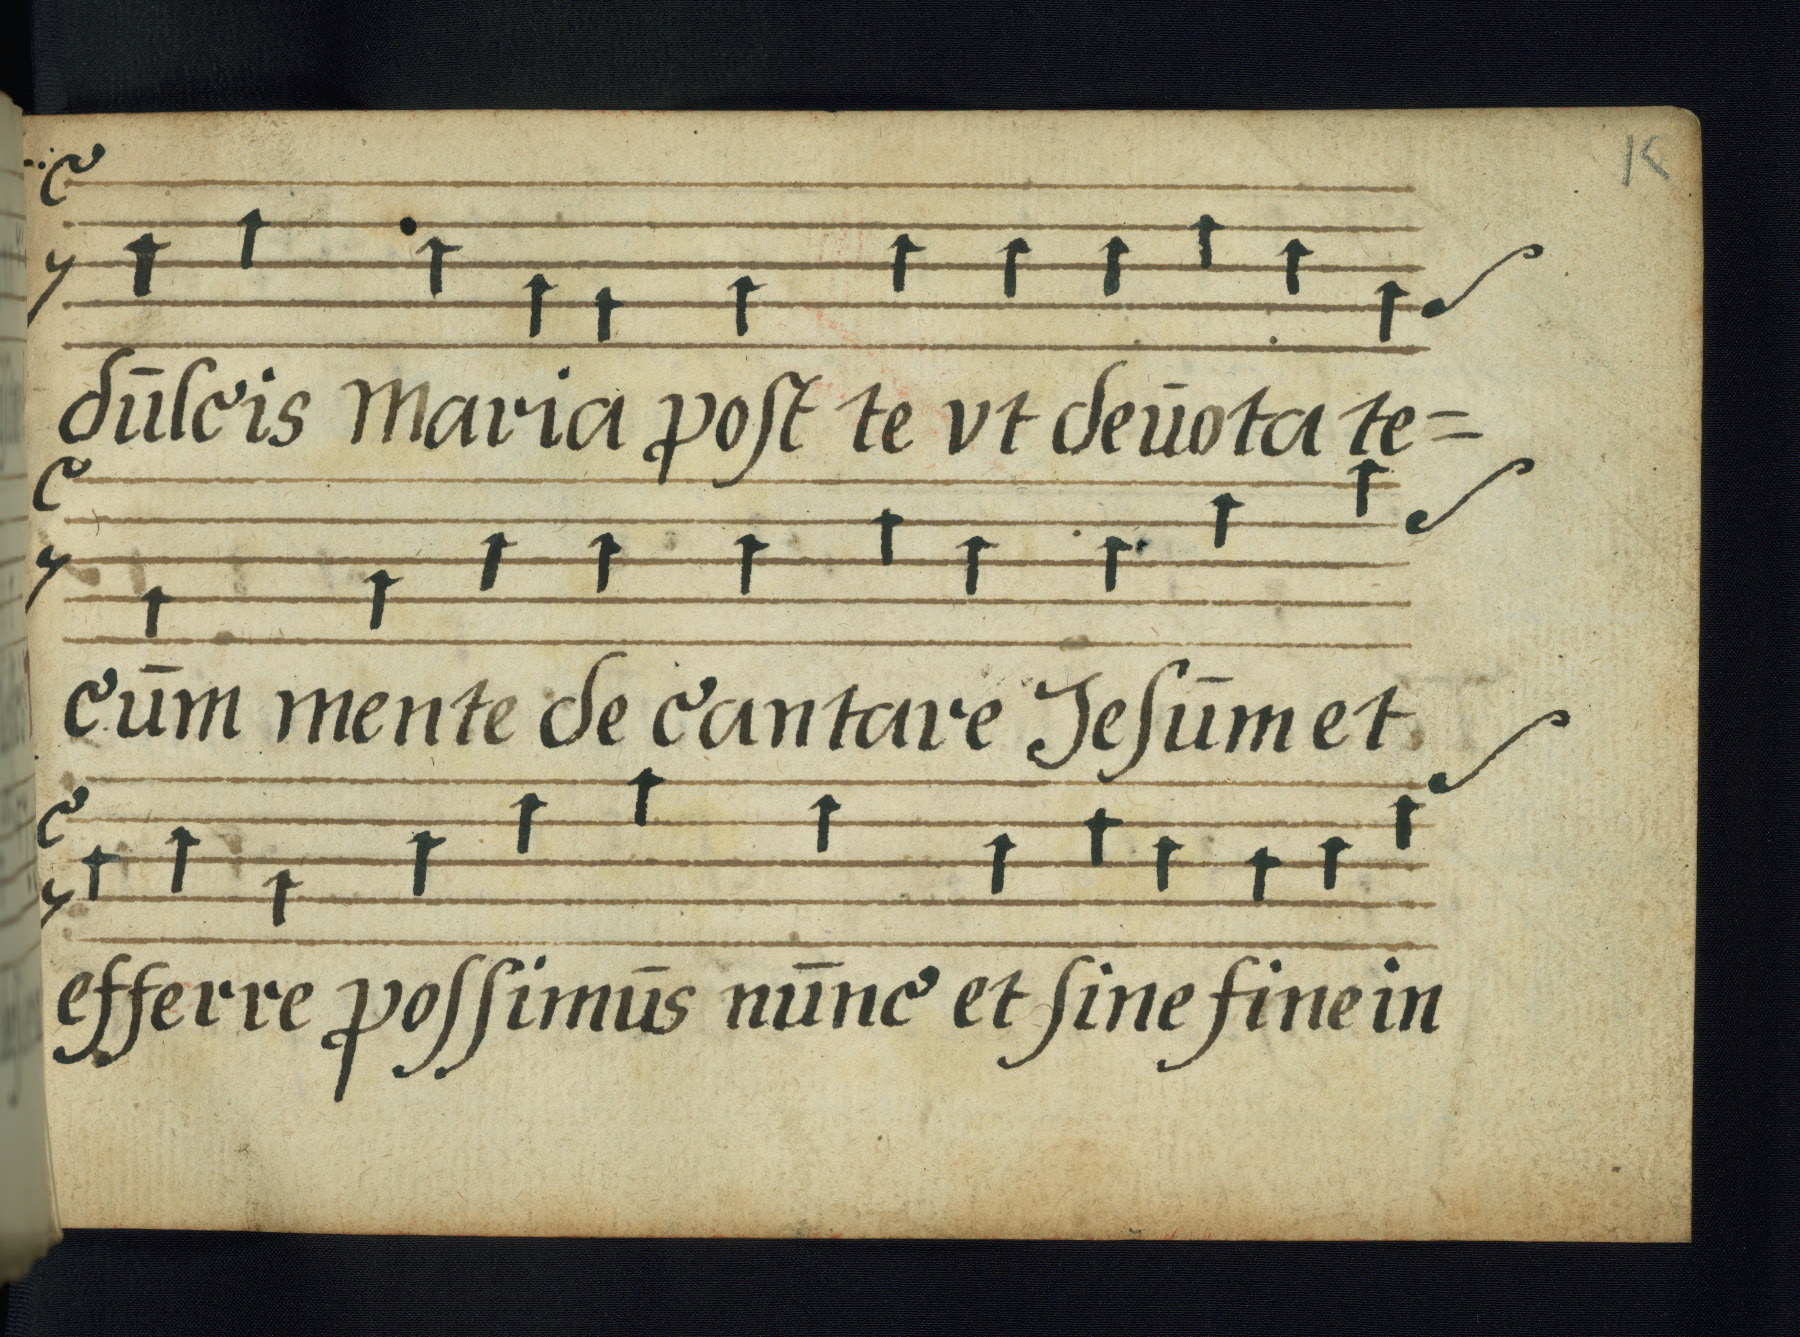 dūlcis Maria post te vt deūota te=
cūm mente de cantare Jesūm et
efferre possimūs nūnc et sine fine in